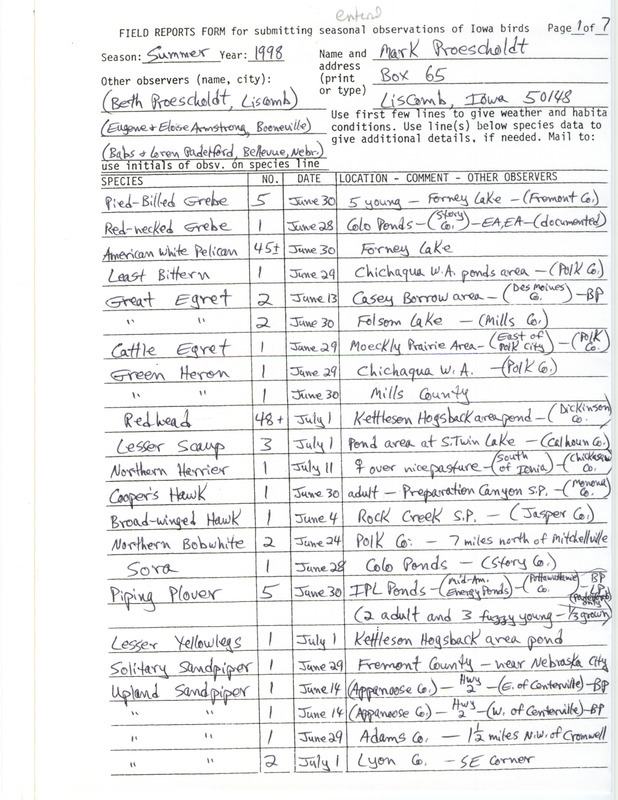 entered
FIELD REPORTS FORM for submitting seasonal observations of Iowa birds Page 1 of 7
Season: Summer Year: 1998 Name and address (print or type) Mark Proescholdt
Box 65
Liscomb, Iowa 50148
Other observers (name, city):
(Beth Proescholdt, Liscomb)
(Eugene + Eloise Armstrong, Booneville)
(Babs + Loren Padelford, Bellevue, Nebr.)
use initials of obsv. on species line
Use first few lines to give weather and habita
conditions. Use line(s) below species data to
give additional details, if needed. Mail to:
SPECIES NO. DATE LOCATION - COMMENT - OTHER OBSERVERS
Pied-Billed Grebe 5 June 30 5 young - Forney Lake - (Fremont Co.)
Red-necked Grebe 1 June 28 Colo Ponds - (Story Co.) - EA, EA - (documented)
American White Pelican 45± June 30 Forney Lake
Least Bittern 1 June 29 Chichaqua W.A. ponds area - (Polk Co.)
Great Egret 2 June 13 Casey Borrow area - (Des Moines Co.) - BP
" " 2 June 30 Folsom Lake - (Mills Co.)
Cattle Egret 1 June 29 Moeckly Prairie Area - (East of Polk City) - (Polk Co.)
Green Heron 1 June 29 Chichaqua W.A. - (Polk Co.)
" " 1 June 30 Mills County
Redhead 48+ July 1 Kettleson Hogsback area pond - (Dickinson Co.)
Lesser Scaup 3 July 1 Pond area at S. Twin Lake - (Calhoun Co.)
Northern Harrier 1 July 11 ♀ over nice pasture - (South of Ionia) - (Chickasaw Co.)
Cooper's Hawk 1 June 30 adult - Preparation Canyon S.P. - (Monona Co.)
Broad-winged Hawk 1 June 4 Rock Creek S.P. - (Jasper Co.)
Northern Bobwhite 2 June 24 Polk Co. - 7 miles north of Mitchellville
Sora 1 June 28 Colo Ponds - (Story Co.)
Piping Plover 5 June 30 IPL Ponds - (Mid-Am. Energy Ponds) - (Pottawattamie Co.) - BP LP (Padelfords only)
(2 adult and 3 fuzzy young - 1/3 grown)
Lesser Yellowlegs 1 July 1 Kettleson Hogsback area pond
Solitary Sandpiper 1 June 29 Fremont County - near Nebraska City
Upland Sandpiper 1 June 14 (Appanoose Co.) - Hwy 2 - (E. of Centerville) - BP
" " 1 June 14 (Appanoose Co.) - Hwy 2 - (W. of Centerville) - BP
" " 1 June 29 Adams Co. - 1½ miles N.W. of Cromwell
" " 2 July 1 Lyon Co. - SE corner